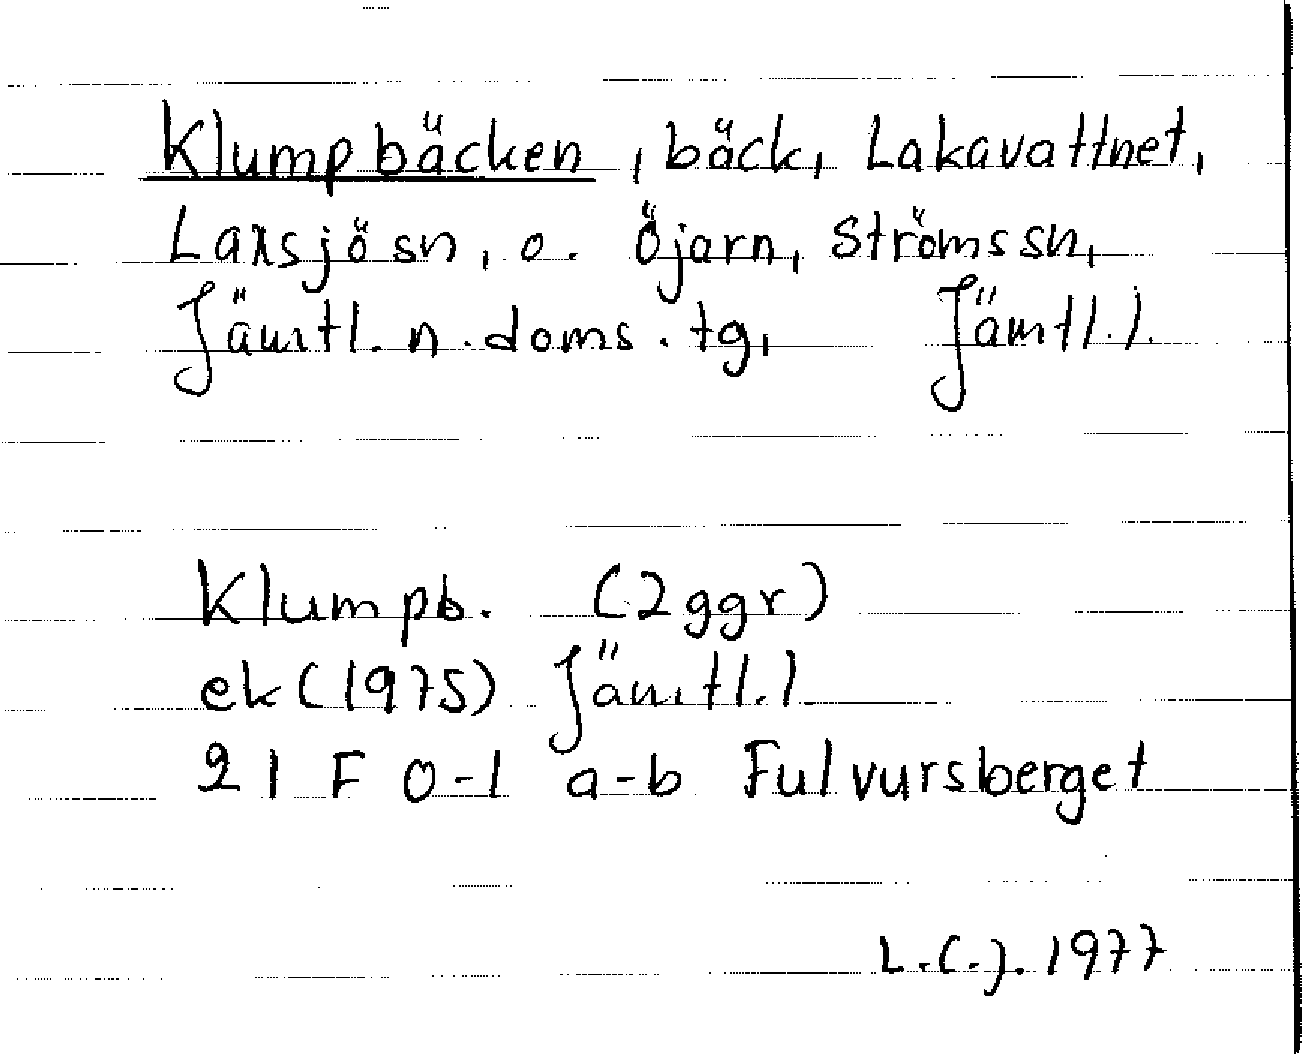 Klumpbäcken, bäck, Lakavattnet,
Laxsjö sn, o. Öjarn, Ströms sn,
Jämtl. n. doms. tg, Jämtl. l.
Klumpb. (2 ggr)
ek (1975) Jämtl. l
21 F 0-1 a-b Fulvursberget
L.C.J. 1977